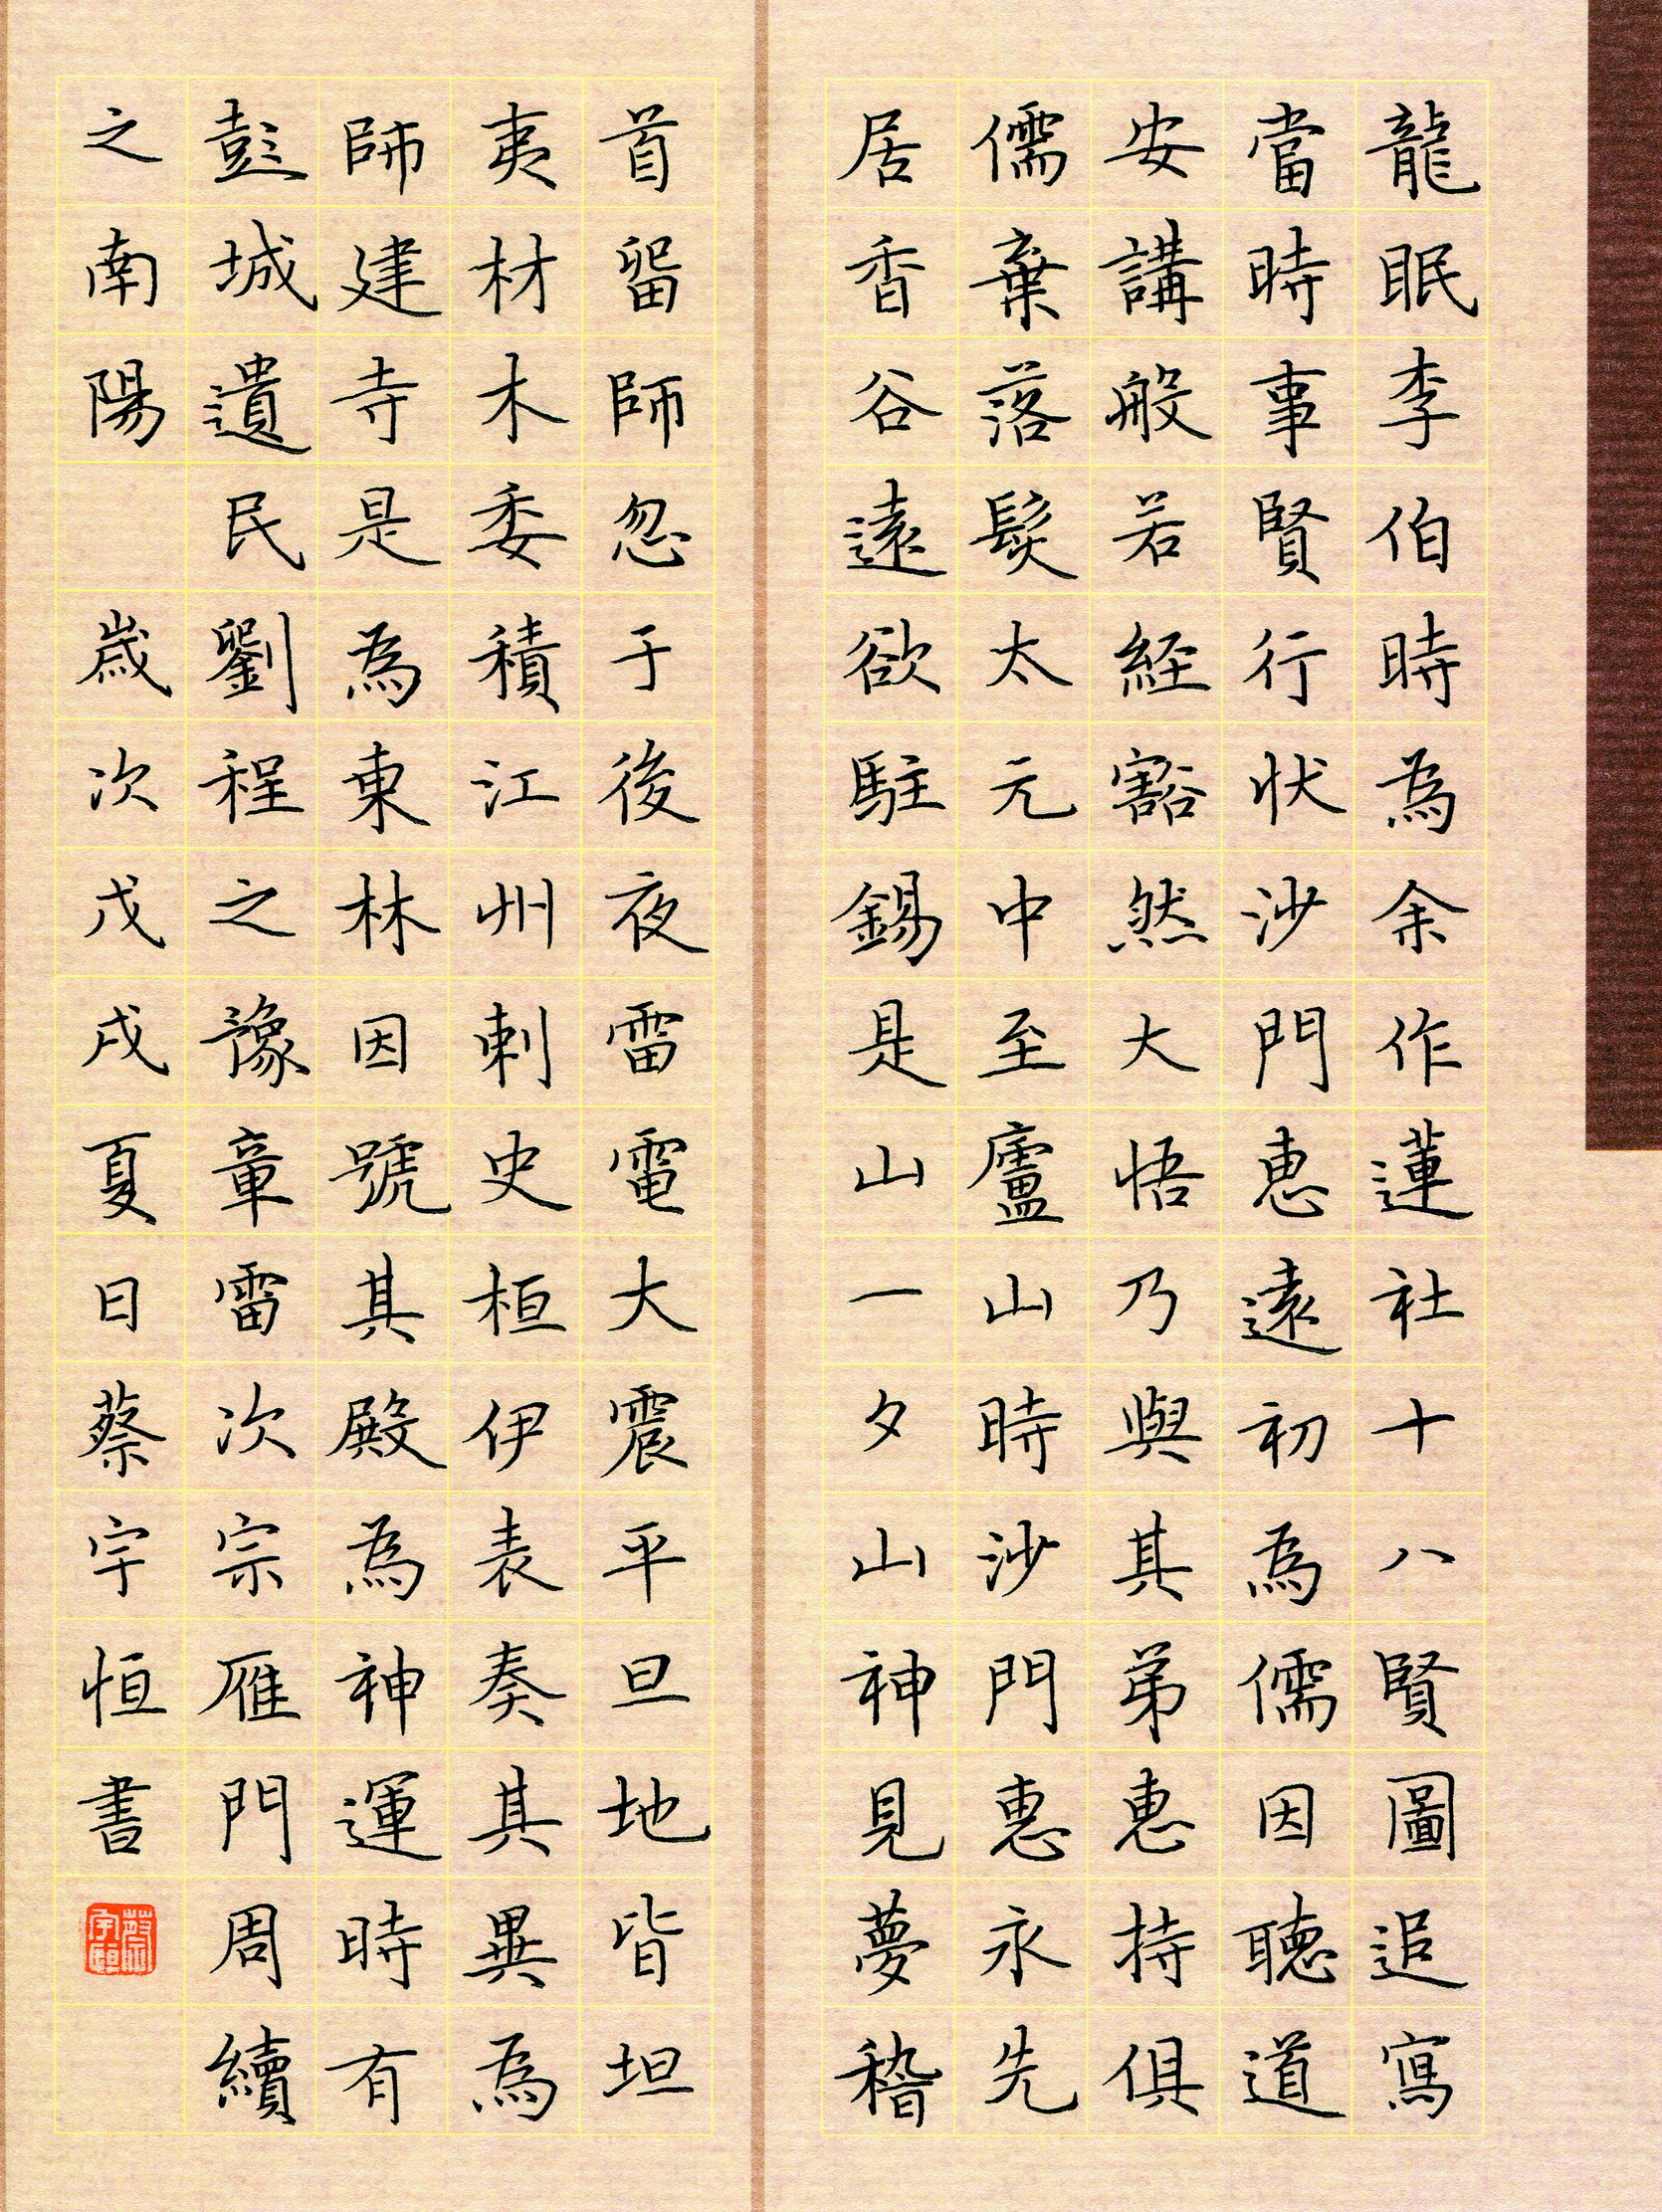 龍眠李伯時為余作蓮社十八賢圖追寫
當時事賢行狀沙門惠遠初為儒因聽道
安講般若經豁然大悟乃與其弟惠持俱
儒棄落髮太元中至廬山時沙門惠永先
居香谷遠欲駐錫是山一夕山神見夢稽
首留師忽于後夜雷電大震平旦地皆坦
夷材木委積江州刺史桓伊表奏其異為
師建寺是為東林因號其殿為神運時有
彭城遺民劉程之豫章雷次宗雁門周續
之南陽 歲次戊戌夏日蔡宇恒書
蔡宇恒